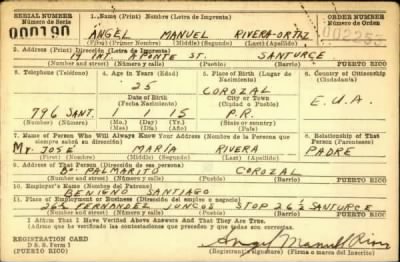 SERIAL NUMBER 1. Name (Print) Nombre (Letra de Imprenta) ORDER NUMBER
Número de Serie Número de Orden
000190 ANGEL MANUEL RIVERA-ORTIZ
(First) (Primer Nombre) (Middle) (Segundo) (Last) (Apellido)
2. Address (Print) Dirección (Letra de Imprenta)
19 INT. APONTE ST. SANTURCE
(Number and street) (Número y calle) (Town) (Pueblo) Barrio PUERTO RICO
3. Telephone (Teléfono) 4. Age in Years (Edad) 5. Place of Birth (Lugar de Nacimiento) 6. Country of Citizenship (Ciudadanía)
25 COROZAL
Date of Birth City or Town E.U.A.
(Fecha Nacimiento) (Ciudad o Pueblo)
796 SANT. 15 P.R.
Number (Número) (Mo.) (Mes) (Day) (Día) (Yr.) (Año) State or Country (Estado o País)
7. Name of Person Who Will Always Know Your Address (Nombre de la Persona que siempre sabrá su dirección) 8. Relationship of That Person (Parentesco)
Mr. JOSE MARÍA RIVERA PADRE
(First) (Primer Nombre) (Middle) (Segundo) (Last) (Apellido)
9. Address of That Person (Dirección de esa persona)
Bo PALMARITO COROZAL
(Number and street) (Número y calle) (Town) (Pueblo) Barrio PUERTO RICO
10. Employer's Name (Nombre del Patrono)
BENIGNO SANTIAGO
11. Place of Employment or Business (Dirección del empleo o negocio)
FERNANDEZ JUNCOS STOP 26½ SANTURCE
(Number and street) (Número y calle) (Town) (Pueblo) Barrio PUERTO RICO
I Affirm That I Have Verified Above Answers and That They Are True.
Afirmo que he verificado las contestaciones precedentes y que son correctas.
REGISTRATION CARD
D. S. S. Form 1
Angel Manuel Rivera
(Registrant's signature) (Firma o marca inscrito)